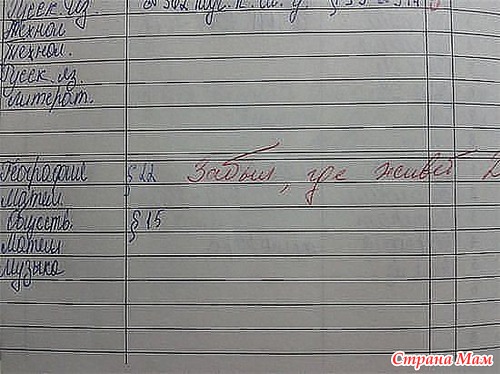 Русск. яз.
Технол
Технол.
Русск яз.
Литерат.
География § 22 Забыл, где живёт 2
Матем.
Обществ. § 15
Матем
Музыка
Страна Мам